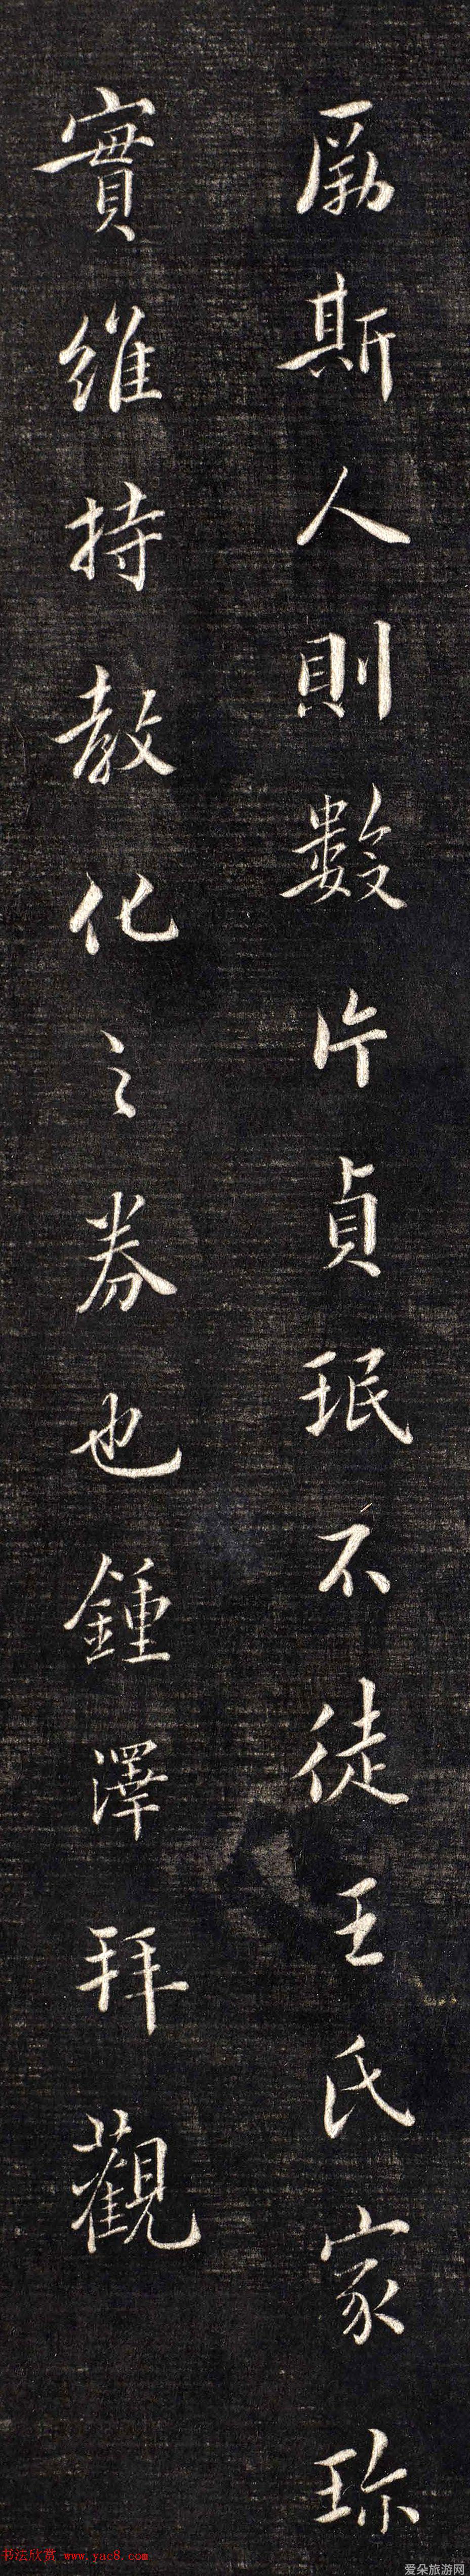 勵斯人則數片貞珉不徒王氏家珎
實維持教化之券也鍾澤拜觀
书法欣赏-www.yac8.com
爱朵旅游网